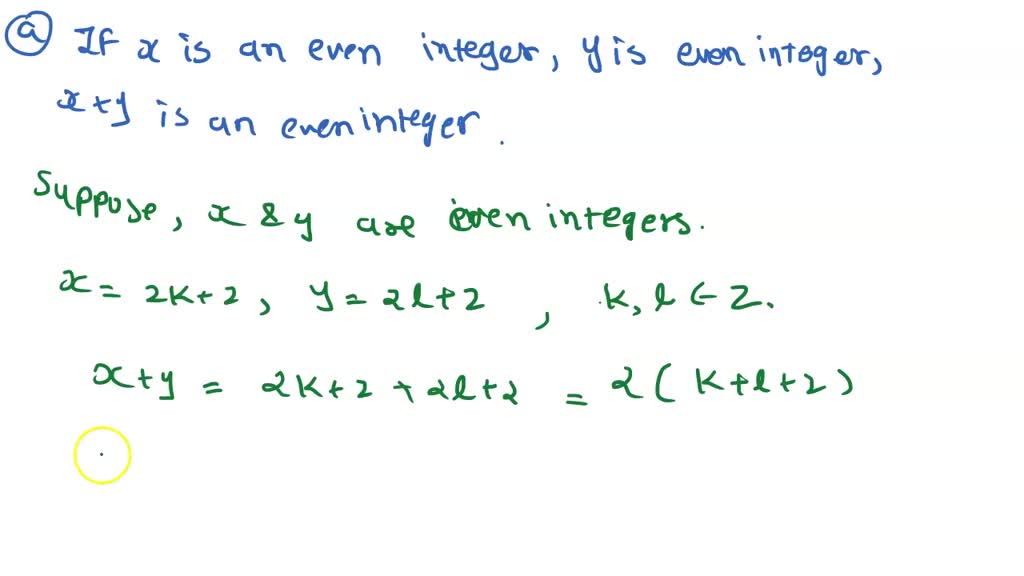 a If x is an even integer, y is even integer,
x+y is an even integer.
Suppose, x & y are even integers.
x = 2k+2, y = 2l+2, k, l ∈ Z.
x+y = 2k+2+2l+2 = 2(k+l+2)